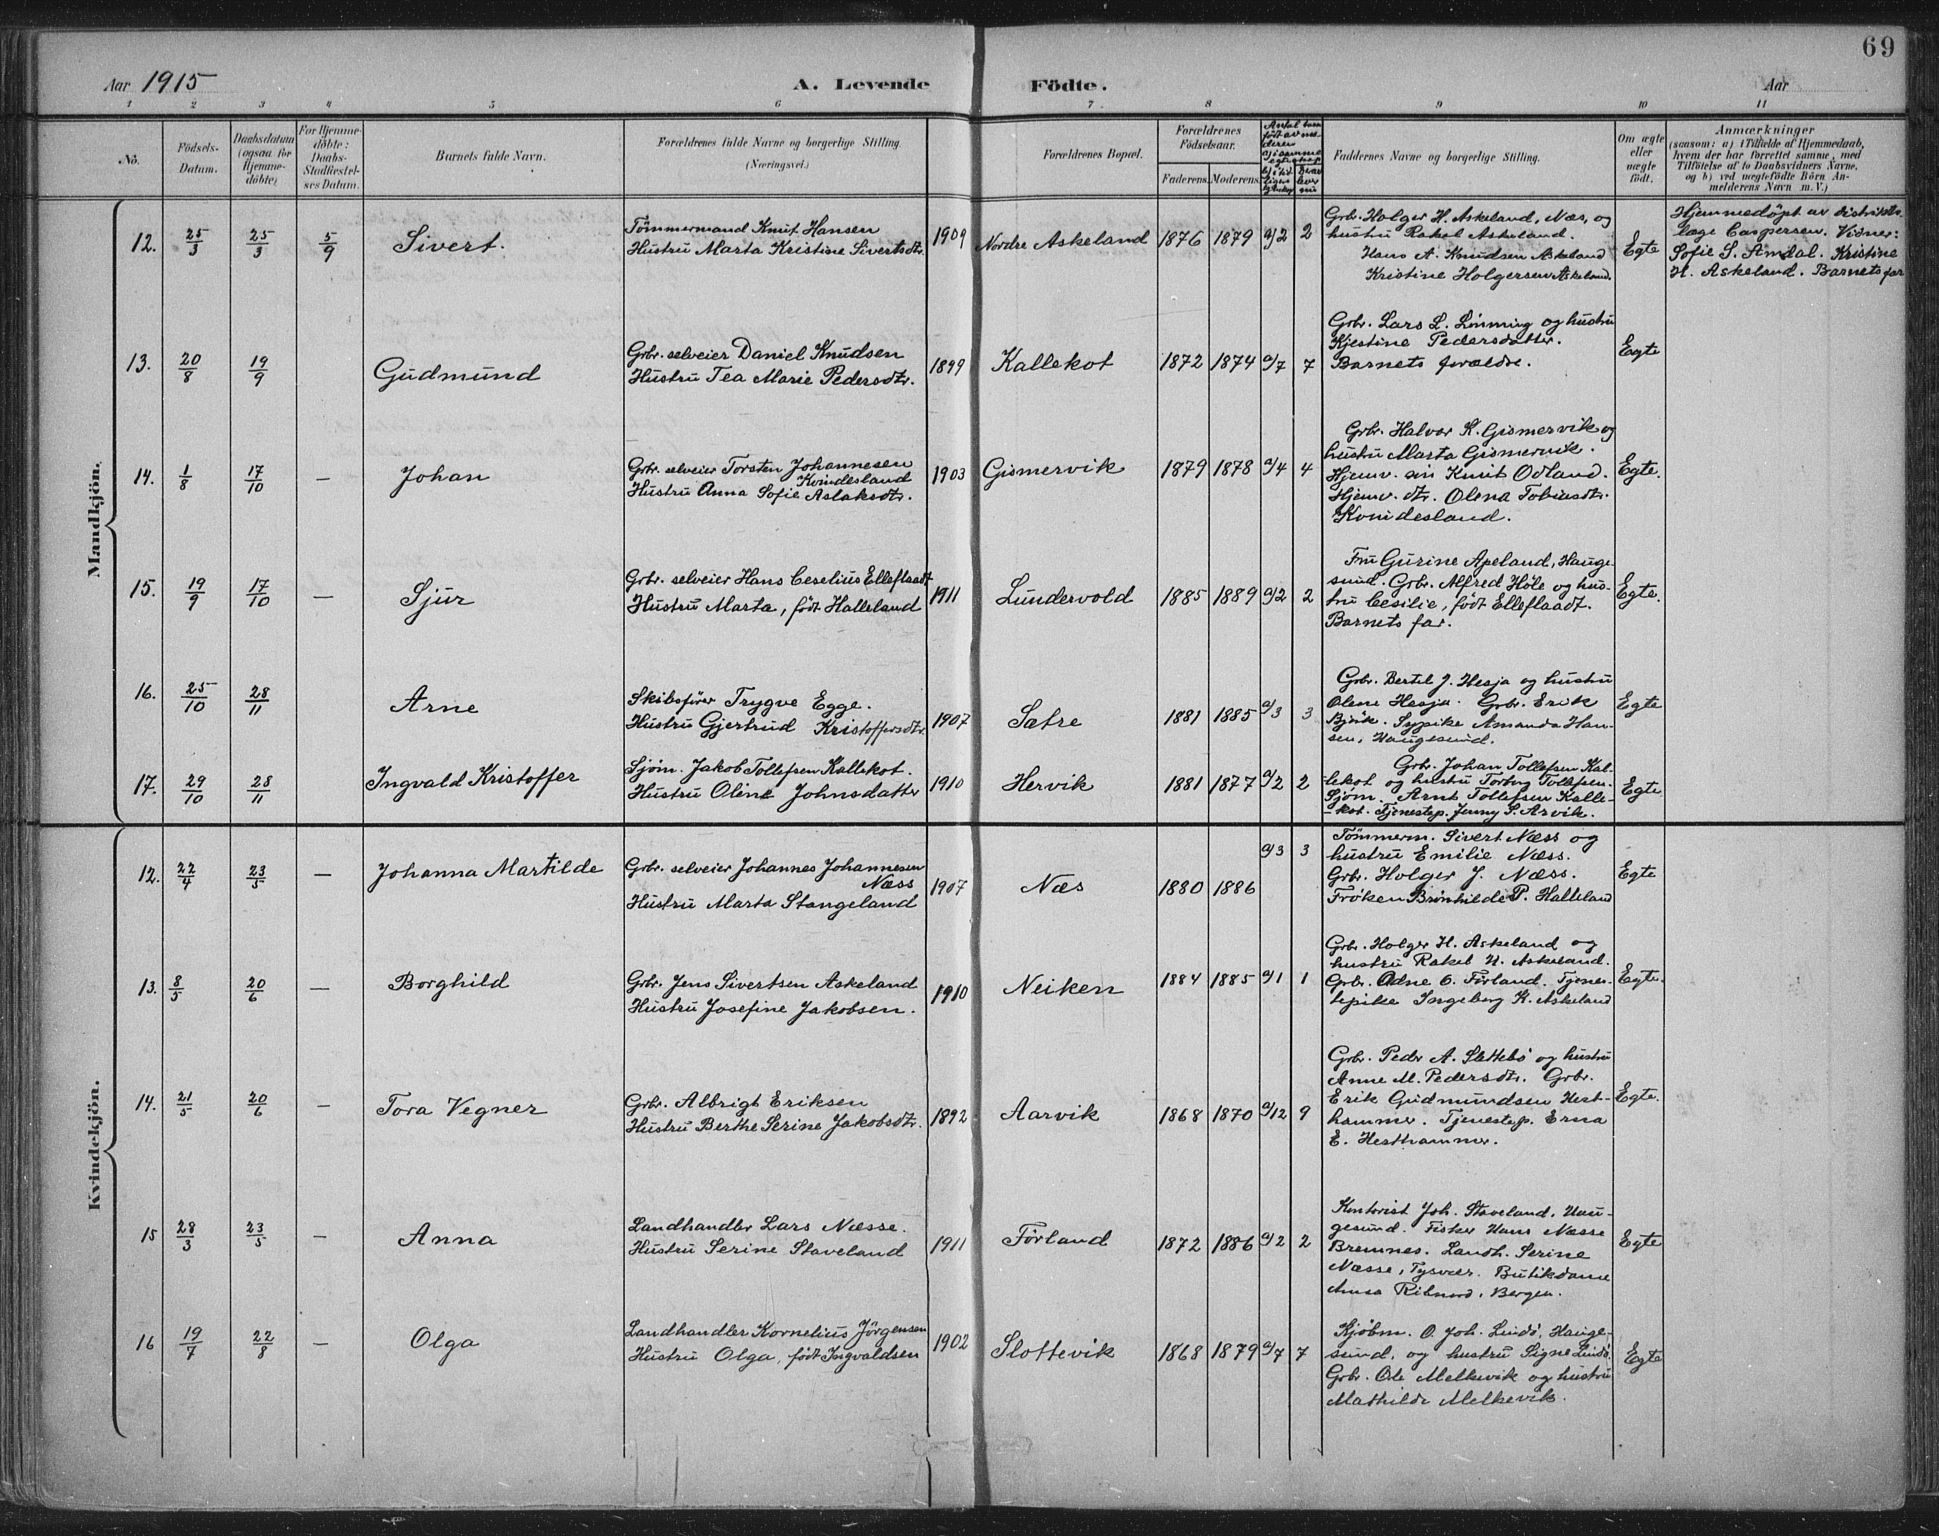 69
Aar 1915 A. Levende Födte. Aar
1 2 3 4 5 6 7 8 9 10 11
No.
Födsels-
Datum.
Daabsdatum
(ogsaa for
Hjemme-
döbte)
For Hjemme-
döbte:
Daabs-
Stadfæstel-
ses Datum.
Barnets fulde Navn.
Forældrenes fulde Navne og borgerlige Stilling.
(Næringsvei.)
Forældrenes Bopæl.
Forældrenes
Födselsaar.
Faderens. Moderens.
Faddernes Navne og borgerlige Stilling.
Om ægte
eller
uægte
født.
Anmærkninger
(saasom: a) i Tilfælde af Hjemmedaab,
hvem der har forrettet samme, med
Tilföielse af to Daabsvidners Navne,
og b) ved uægtefödte Börn An-
melderens Navn m. V.)
Mandkjön.
12. 25/3 25/3 5/9 Sivert.
Tømmermand Knut Hansen
Hustru Marta Kristine Sivertsdtr.
1909 Nordre Askeland 1876 1879 a/2 2
Grbr. Holger H. Askeland, Næs, og
hustru Rakel Askeland.
Hans A. Knudsen Askeland
Kristine Holgersen Askeland.
Egte
Hjemmedöpt av distrikts-
læge Caspersen. Vidner:
Sofie S. Amdal. Kristine
H. Askeland. Barnets far
13. 20/8 19/9 Gudmund
Grbr. selveier Daniel Knudsen
Hustru Tea Marie Pedersdtr.
1899 Kallekot 1872 1874 a/7 7
Grbr. Lars L. Lönning og hustru
Kjestine Pedersdatter.
Barnets forældre.
Egte
14. 1/8 17/10 — Johan
Grbr. selveier Torsten Johannesen
Kvindesland
Hustru Anna Sofie Aslaksdtr.
1903 Gismervik 1879 1878 a/4 4
Grbr. Halvor K. Gismervik og
hustru Marta Gismervik.
Hjemv. søn Knut Odland.
Hjemv. dtr. Olena Tobiasdtr.
Kvindesland.
Egte.
15. 19/9 17/10 — Sjur
Grbr. selveier Hans Ceselius Elleflaadt
Hustru Marta, født Halleland
1911 Lundervold 1885 1889 a/2 2
Fru Gurine Apeland, Hauge-
sund. Grbr. Alfred Høle og hus-
tru Cesilie, født Elleflaadt.
Barnets far.
Egte.
16. 25/10 28/11 Arne
Skibsfører Trygve Egge.
Hustru Gjertrud Kristoffersdtr.
1907 Satre 1881 1885 a/3 3
Grbr. Bertel J. Hesja og hustru
Olene Hesja. Grbr. Erik
Sypike Amanda Han-
sen, Haugesund.
Egte
17. 29/10 28/11 Ingvald Kristoffer
Sjøm. Jakob Tollefsen Kallekot.
Hustru Oline Johnsdatter
1910 Hervik 1881 1877 a/2 2
Grbr. Johan Tollefsen Kal-
lekot og hustru Torborg Tollefsen.
Sjøm. Arnt Tollefsen Kalle-
kot. Tjenestep. Jenny S. Arvik.
Egte
Kvindekjön.
12. 22/4 23/5 — Johanna Martilde
Grbr. selveier Johannes Johannesen
Næss
Hustru Marta Stangeland
1907 Næs 1880 1886 a/3 3
Tømmerm. Sivert Næss og
hustru Emilie Næss.
Grbr. Holger J. Næss.
Frøken Brönhilde P. Halleland
Egte
13. 8/5 20/6 — Borghild
Grbr. Jens Sivertsen Askeland
Hustru Josefine Jakobsen.
1910 Neiken 1884 1885 a/1 1
Grbr. Holger H. Askeland og
hustru Rakel H. Askeland.
Grbr. Odne O. Førland. Tjenes-
tepike Ingeborg K. Askeland
Egte.
14. 21/5 20/6 — Tora Vegner
Grbr. Albrigt Eriksen
Hustru Berthe Serine Jakobsdtr.
1892 Aarvik 1868 1870 a/12 9
Grbr. Peder A. Slettebö og hustru
Anne M. Pedersdtr. Grbr.
Erik Gudmundsen Hest-
hammer. Tjenestep. Erna
E. Hesthammer.
Egte.
15 28/3 23/5 — Anna
Landhandler Lars Næsse.
Hustru Serine Staveland
1911 Førland 1872 1886 a/2 2
Kontorist Joh. Staveland, Hau-
gesund. Fisker Hans Næsse
Bremnes. Landh. Serine
Næsse, Tysvær. Butikdame
Bergen.
Egte
16 19/7 22/8 — Olga
Landhandler Kornelius Jörgensen
Hustru Olga, født Ingvaldsen
1902 Slottevik 1868 1879 a/7 7
Kjøbm. O. Joh. Lindö, Hauge-
sund, og hustru Signe Lindö.
Grbr. Ole Melkevik og hustru
Mathilde Melkevik.
Egte